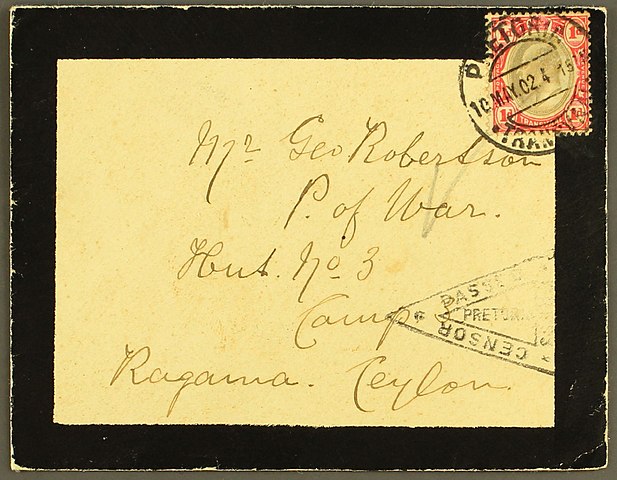 PRETORIA
10 MAY.02.4
TRANS
1D
1D
TRANS
Mr Geo Robertson
P. of War.
Hut. No 3
Camp
Ragama. Ceylon.
PASSED
PRETORIA
CENSOR